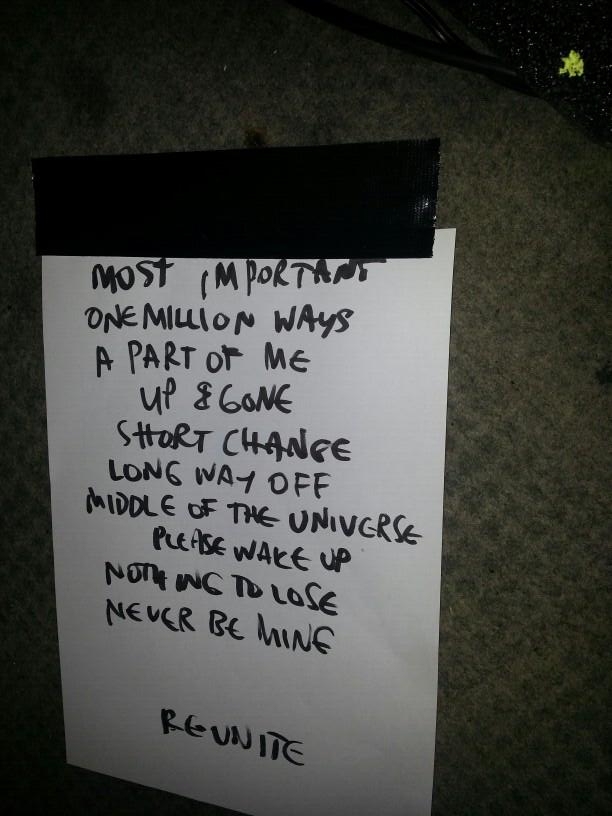 MOST IMPORTANT
ONE MILLION WAYS
A PART OF ME
UP & GONE
SHORT CHANGE
LONG WAY OFF
MIDDLE OF THE UNIVERSE
PLEASE WAKE UP
NOTHING TO LOSE
NEVER BE MINE
REUNITE